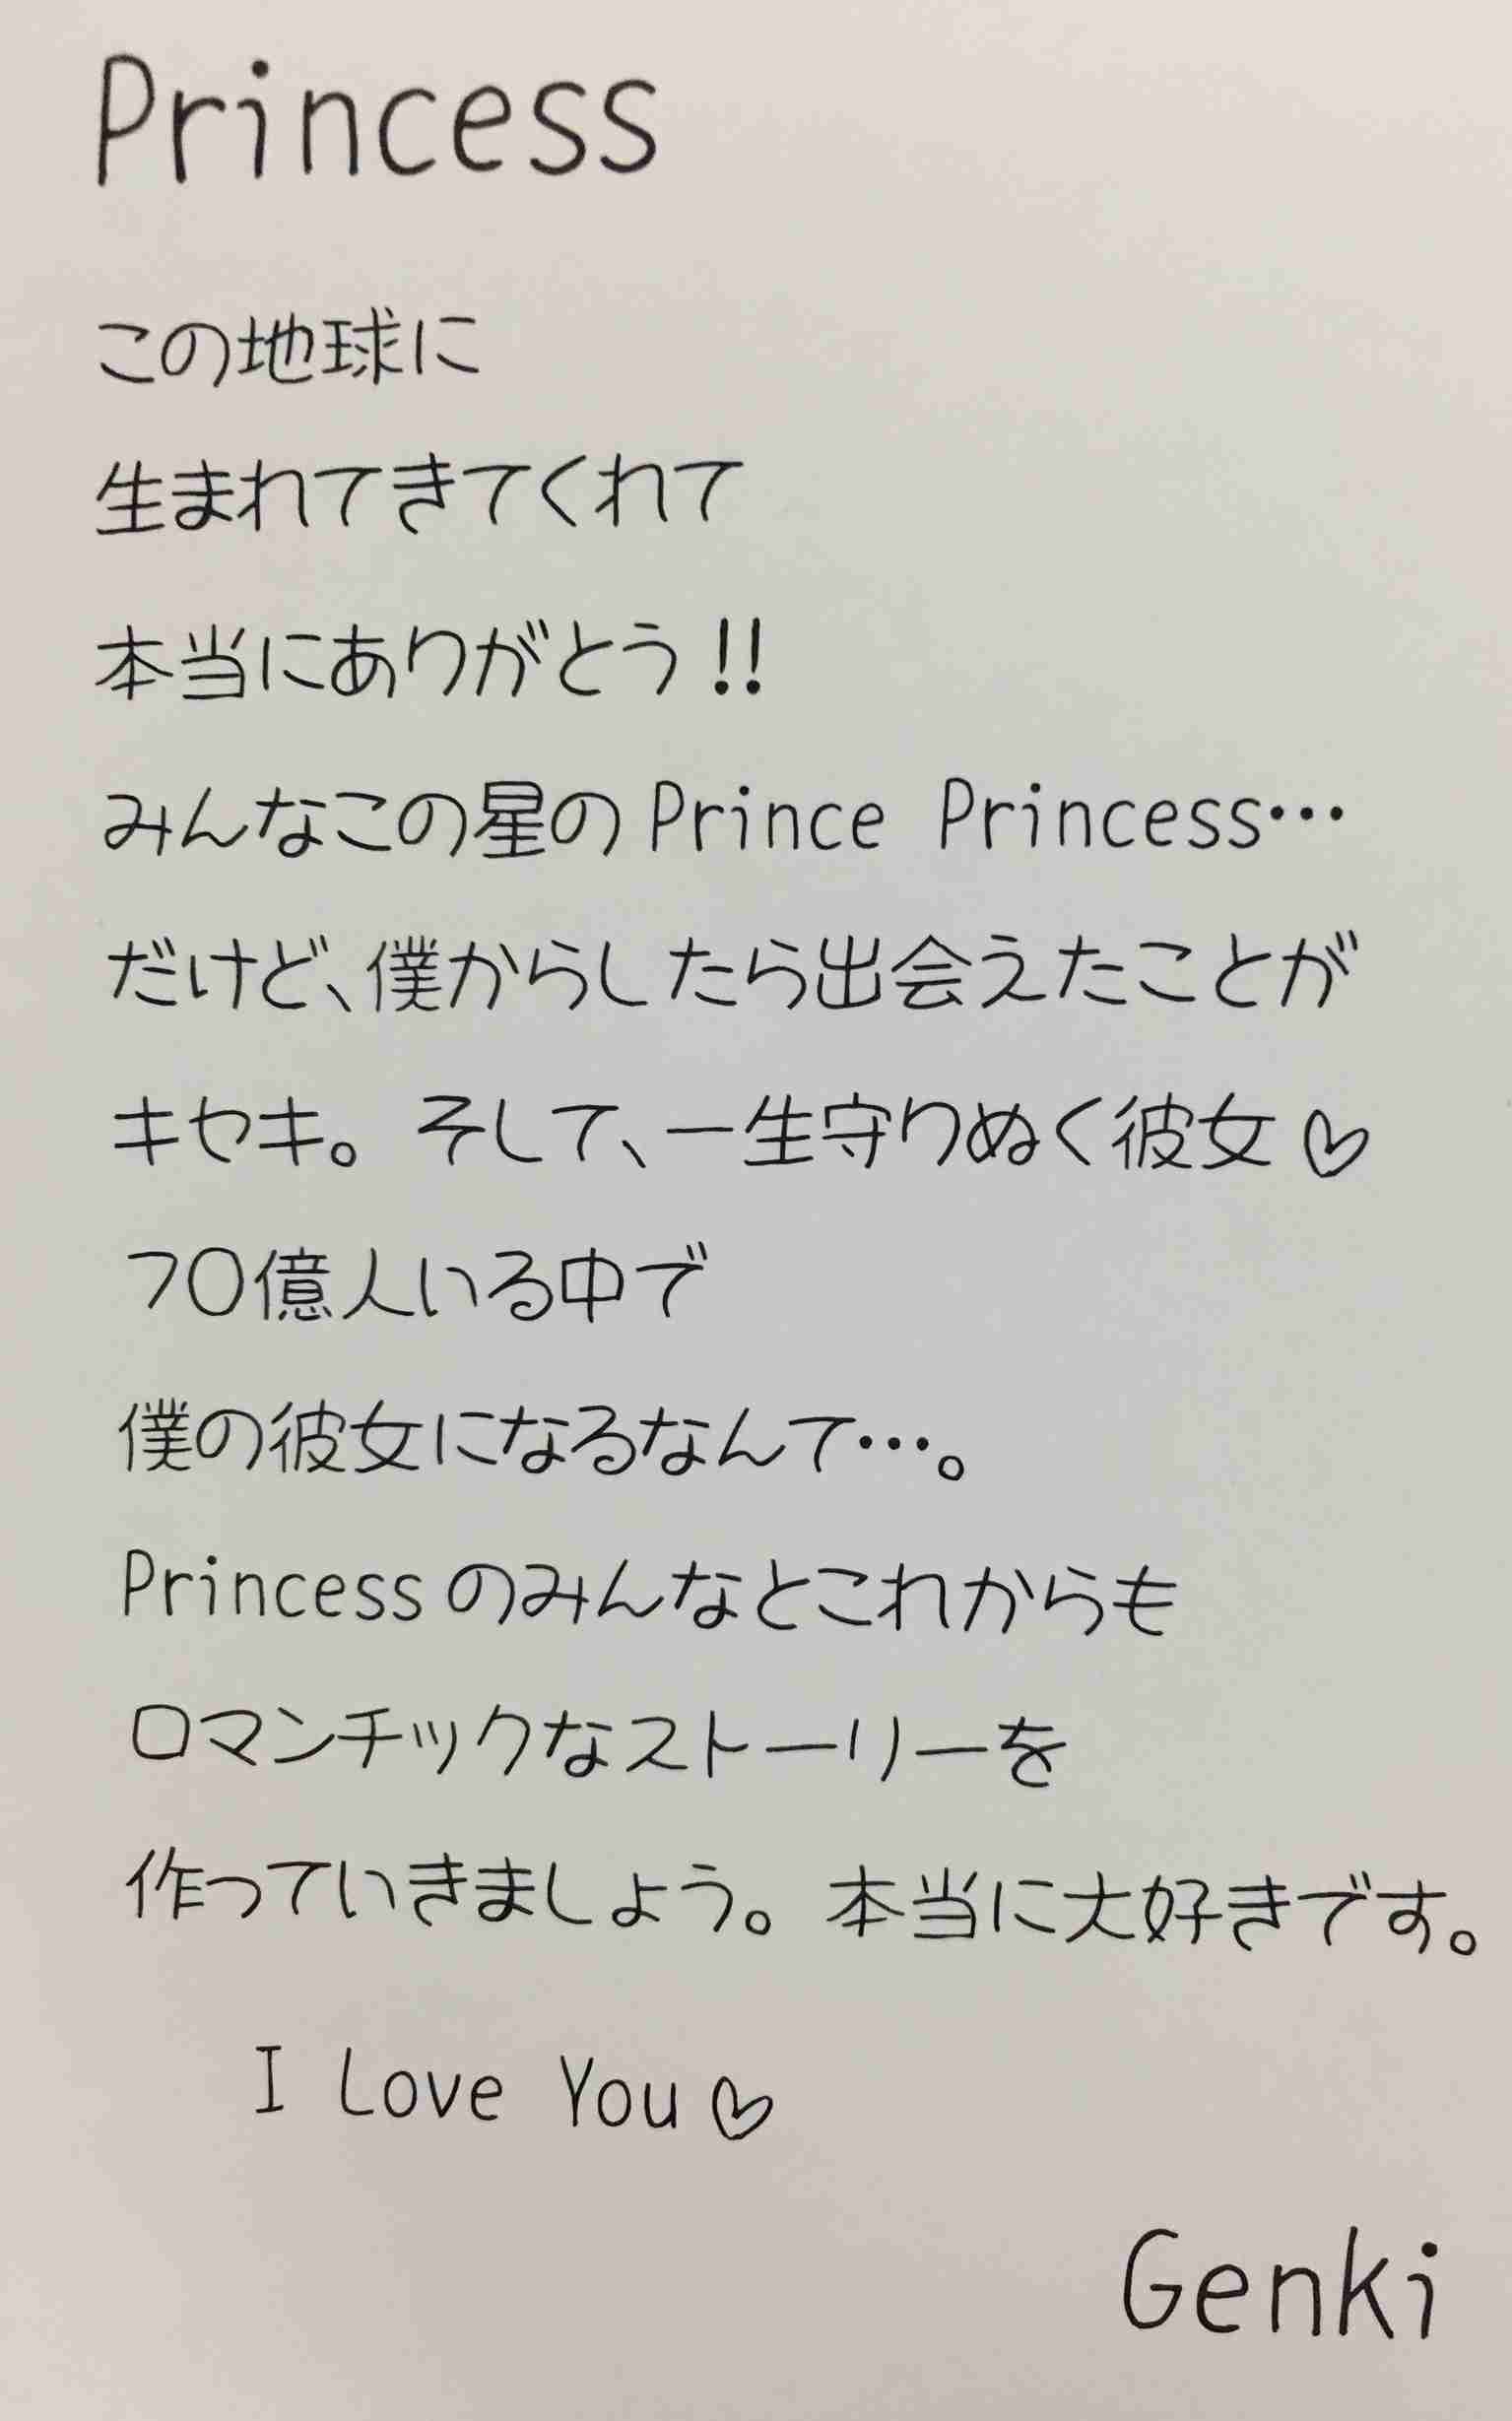 Princess
この地球に
生まれてきてくれて
本当にありがとう!!
みんなこの星のPrince Princess…
だけど、僕からしたら出会えたことが
キセキ。そして、一生守りぬく彼女♡
70億人いる中で
僕の彼女になるなんて…。
Princessのみんなとこれからも
ロマンチックなストーリーを
作っていきましょう。本当に大好きです。
I Love You♡
Genki